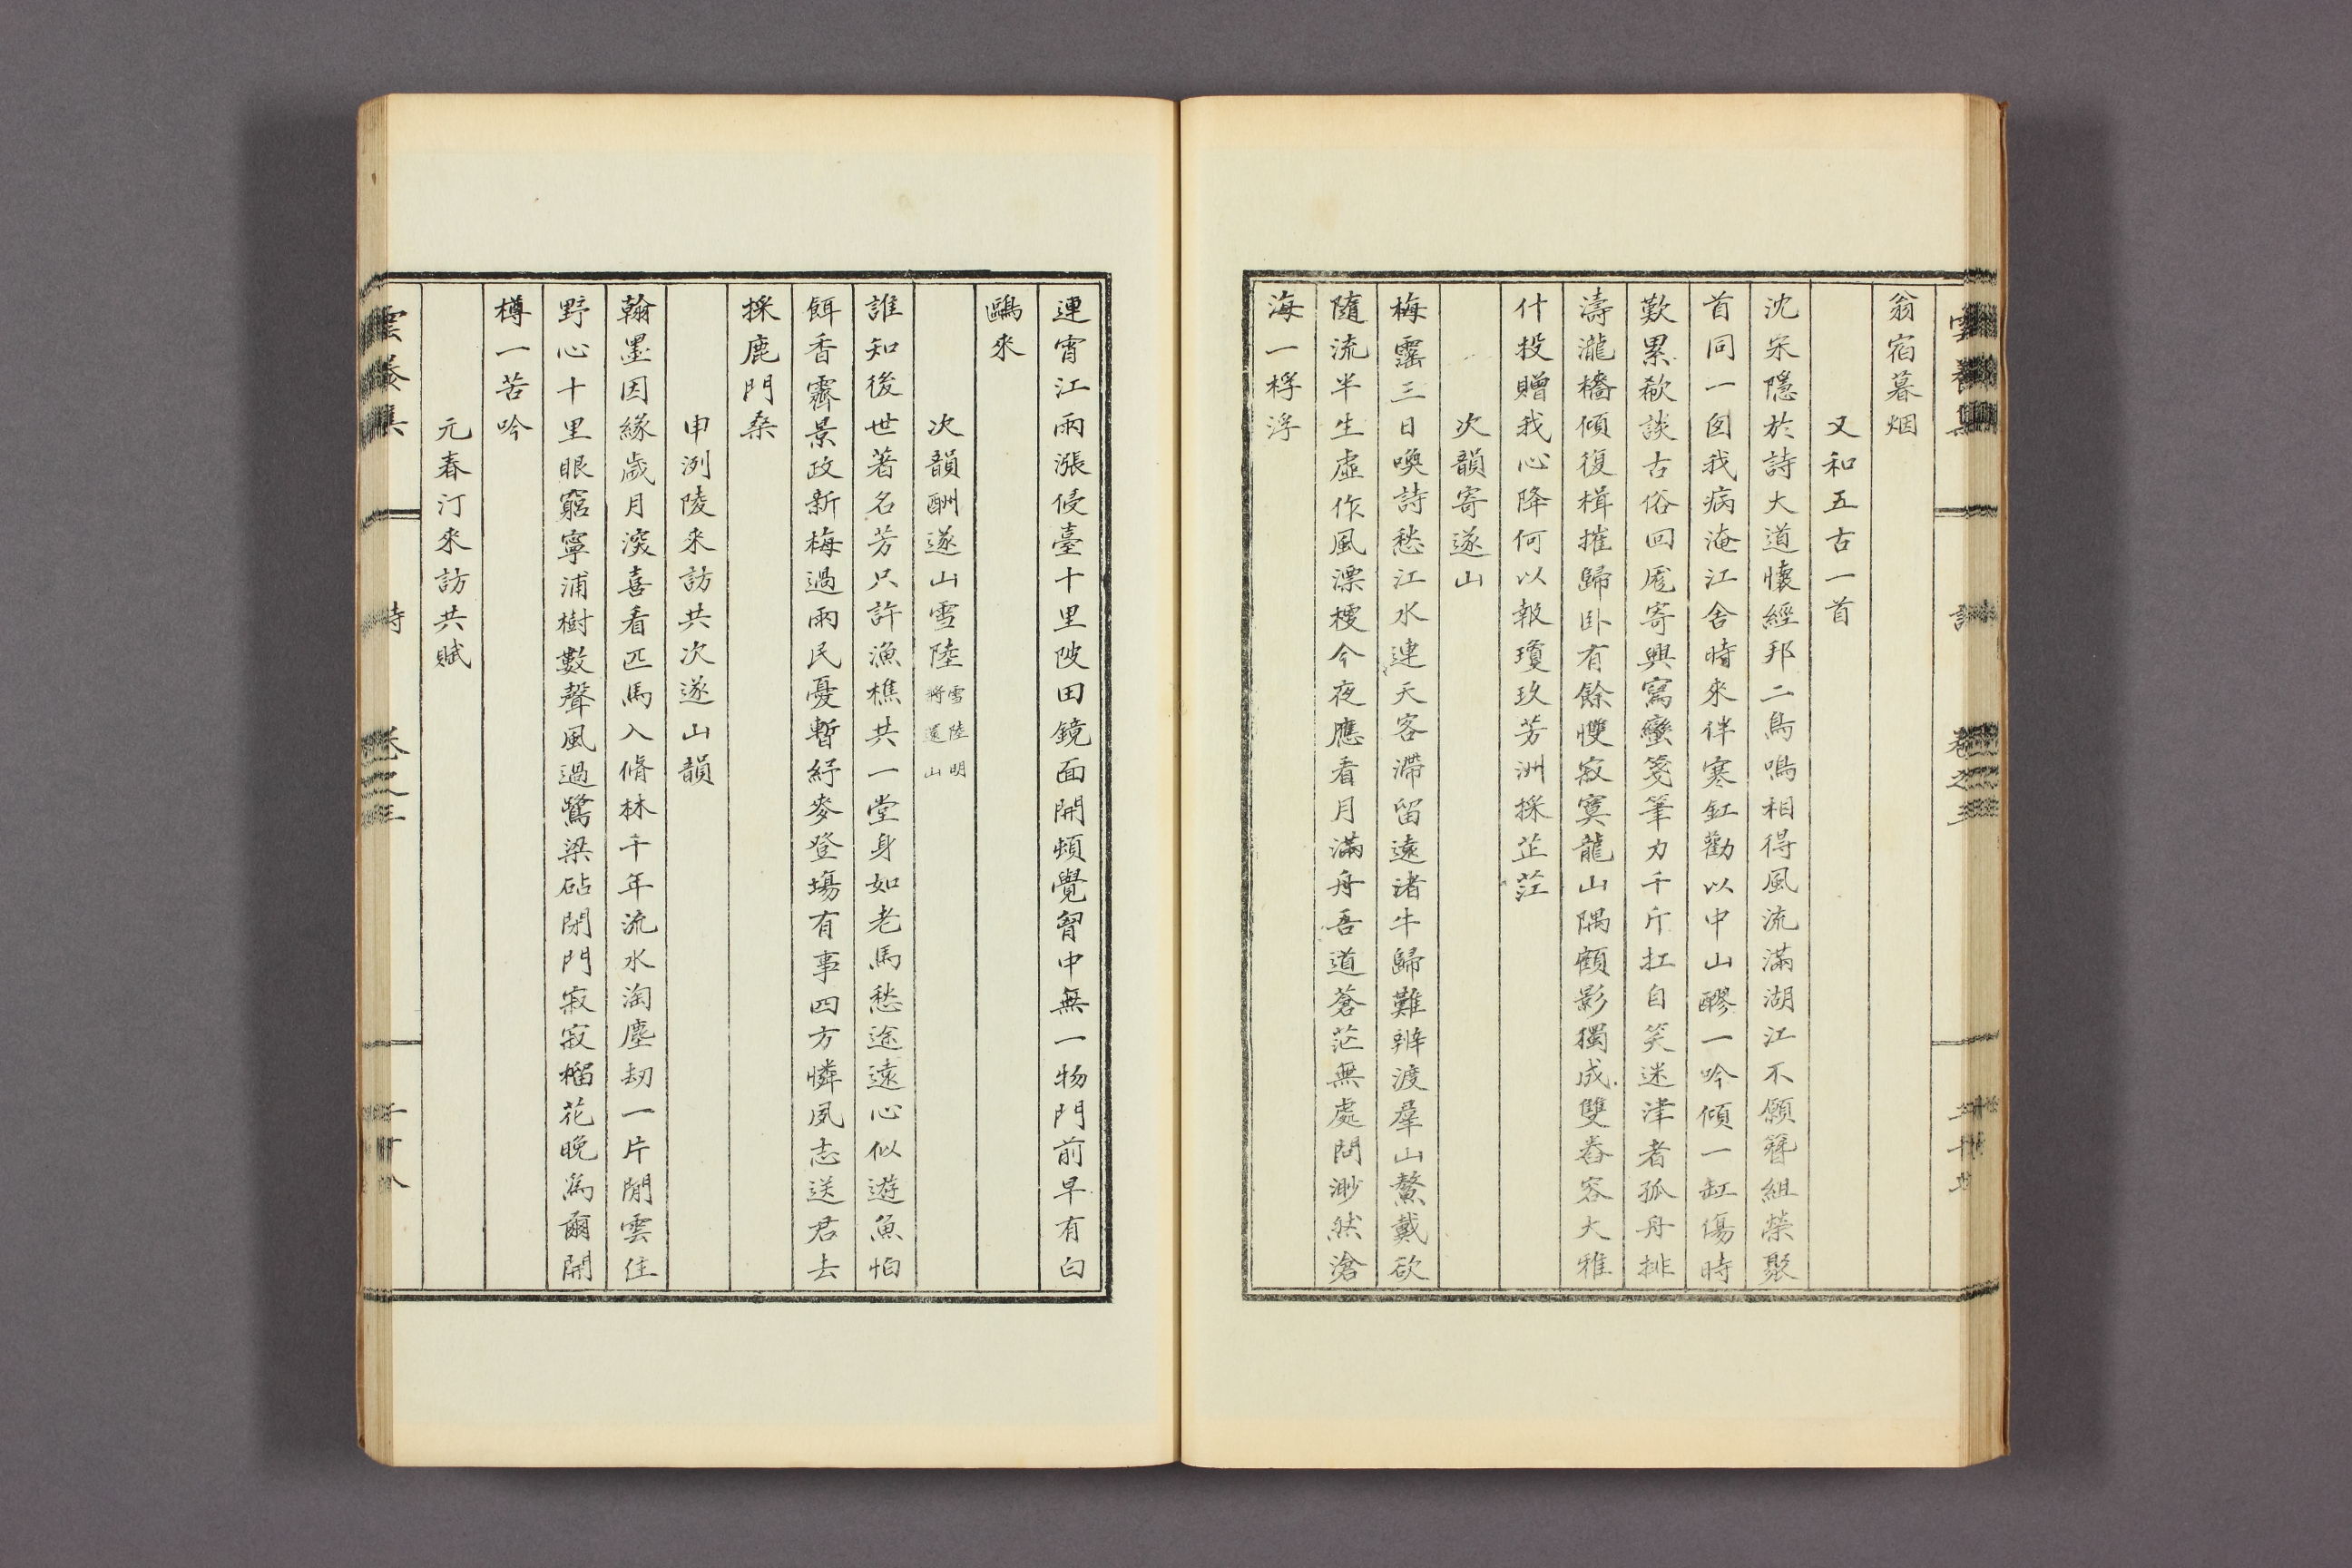 翁宿暮烟
又和五古一首
沈宋隱於詩大道懷經邦二鳥鳴相得風流滿湖江不願簪組榮聚
首同一囱我病淹江舍時來伴寒釭勸以中山醪一吟傾一缸傷時
歎累欷談古俗回尨寄興寫蠻箋筆力千斤扛自笑迷津者孤舟排
濤瀧檣傾復楫摧歸卧有餘㦼寂寞龍山隅顧影獨成雙舂容大雅
什投贈我心降何以報瓊玖芳洲採芷茳
次韻寄遂山
梅霪三日喚詩愁江水連天客滯留遠渚牛歸難辨渡羣山鰲戴欲
隨流半生虛作風漂梗今夜應看月滿舟吾道蒼茫無處問渺然滄
海一桴浮
連宵江雨漲侵臺十里陂田鏡面開頻覺胷中無一物門前早有白
鷗來
次韻酬遂山雪陸雪陸明將還山
誰知後世著名芳只許漁樵共一堂身如老馬愁途遠心似遊魚怕
餌香霽景政新梅過雨民憂暫紓麥登場有事四方憐夙志送君去
採鹿門桒
申洌陵來訪共次遂山韻
翰墨因緣歲月深喜看匹馬入脩林千年流水淘塵刼一片閒雲住
野心十里眼窮寧浦樹數聲風過鷺梁砧閉門寂寂榴花晚爲爾開
樽一苦吟
元春汀來訪共賦
雲養集
詩
卷之三
二十八